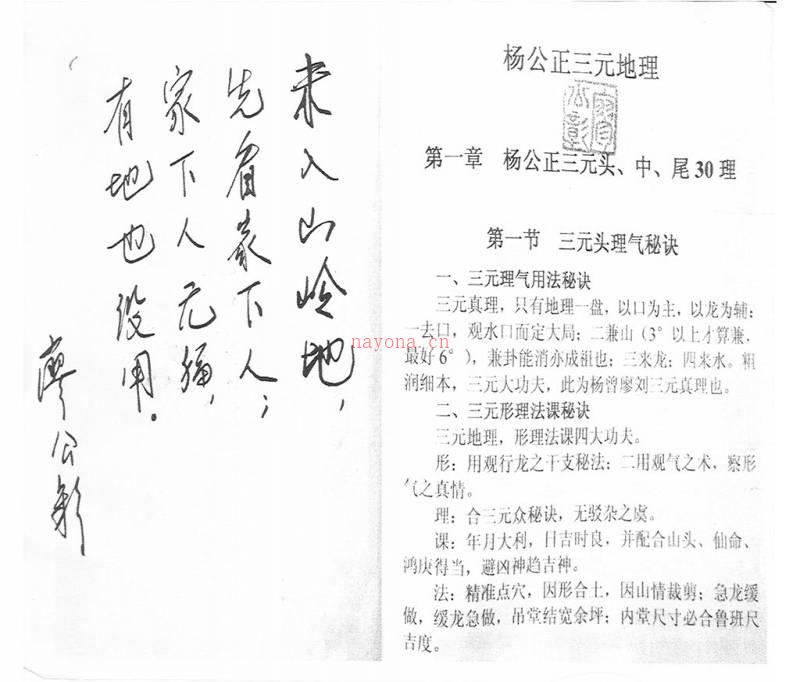 未入山岭地，
先看家下人；
家下人无福，
有地也没用。
廖公彰
nayona.cn
杨公正三元地理
第一章 杨公正三元头、中、尾30理
第一节 三元头理气秘诀
一、三元理气用法秘诀
三元真理，只有地理一盘，以口为主，以龙为辅：
一去口，观水口而定大局；二兼山（3°以上才算兼，
最好6°），兼卦能消亦成祖也；三来龙；四来水。粗
润细本，三元大功夫，此为杨曾廖刘三元真理也。
二、三元形理法课秘诀
三元地理，形理法课四大功夫。
形：用观行龙之干支秘法；二用观气之术，察形
气之真情。
理：合三元众秘诀，无驳杂之虞。
课：年月大利，日吉时良，并配合山头、仙命、
鸿庚得当，避凶神趋吉神。
法：精准点穴，因形合土，因山情裁剪；急龙缓
做，缓龙急做，吊堂结宽余坪；内堂尺寸必合鲁班尺
吉度。